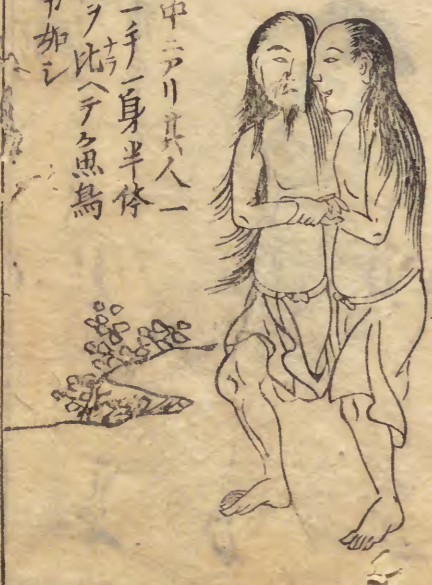 中ニアリ其人一
一手一身半体
ヲ比ヘテ魚鳥
ナラ
如シ